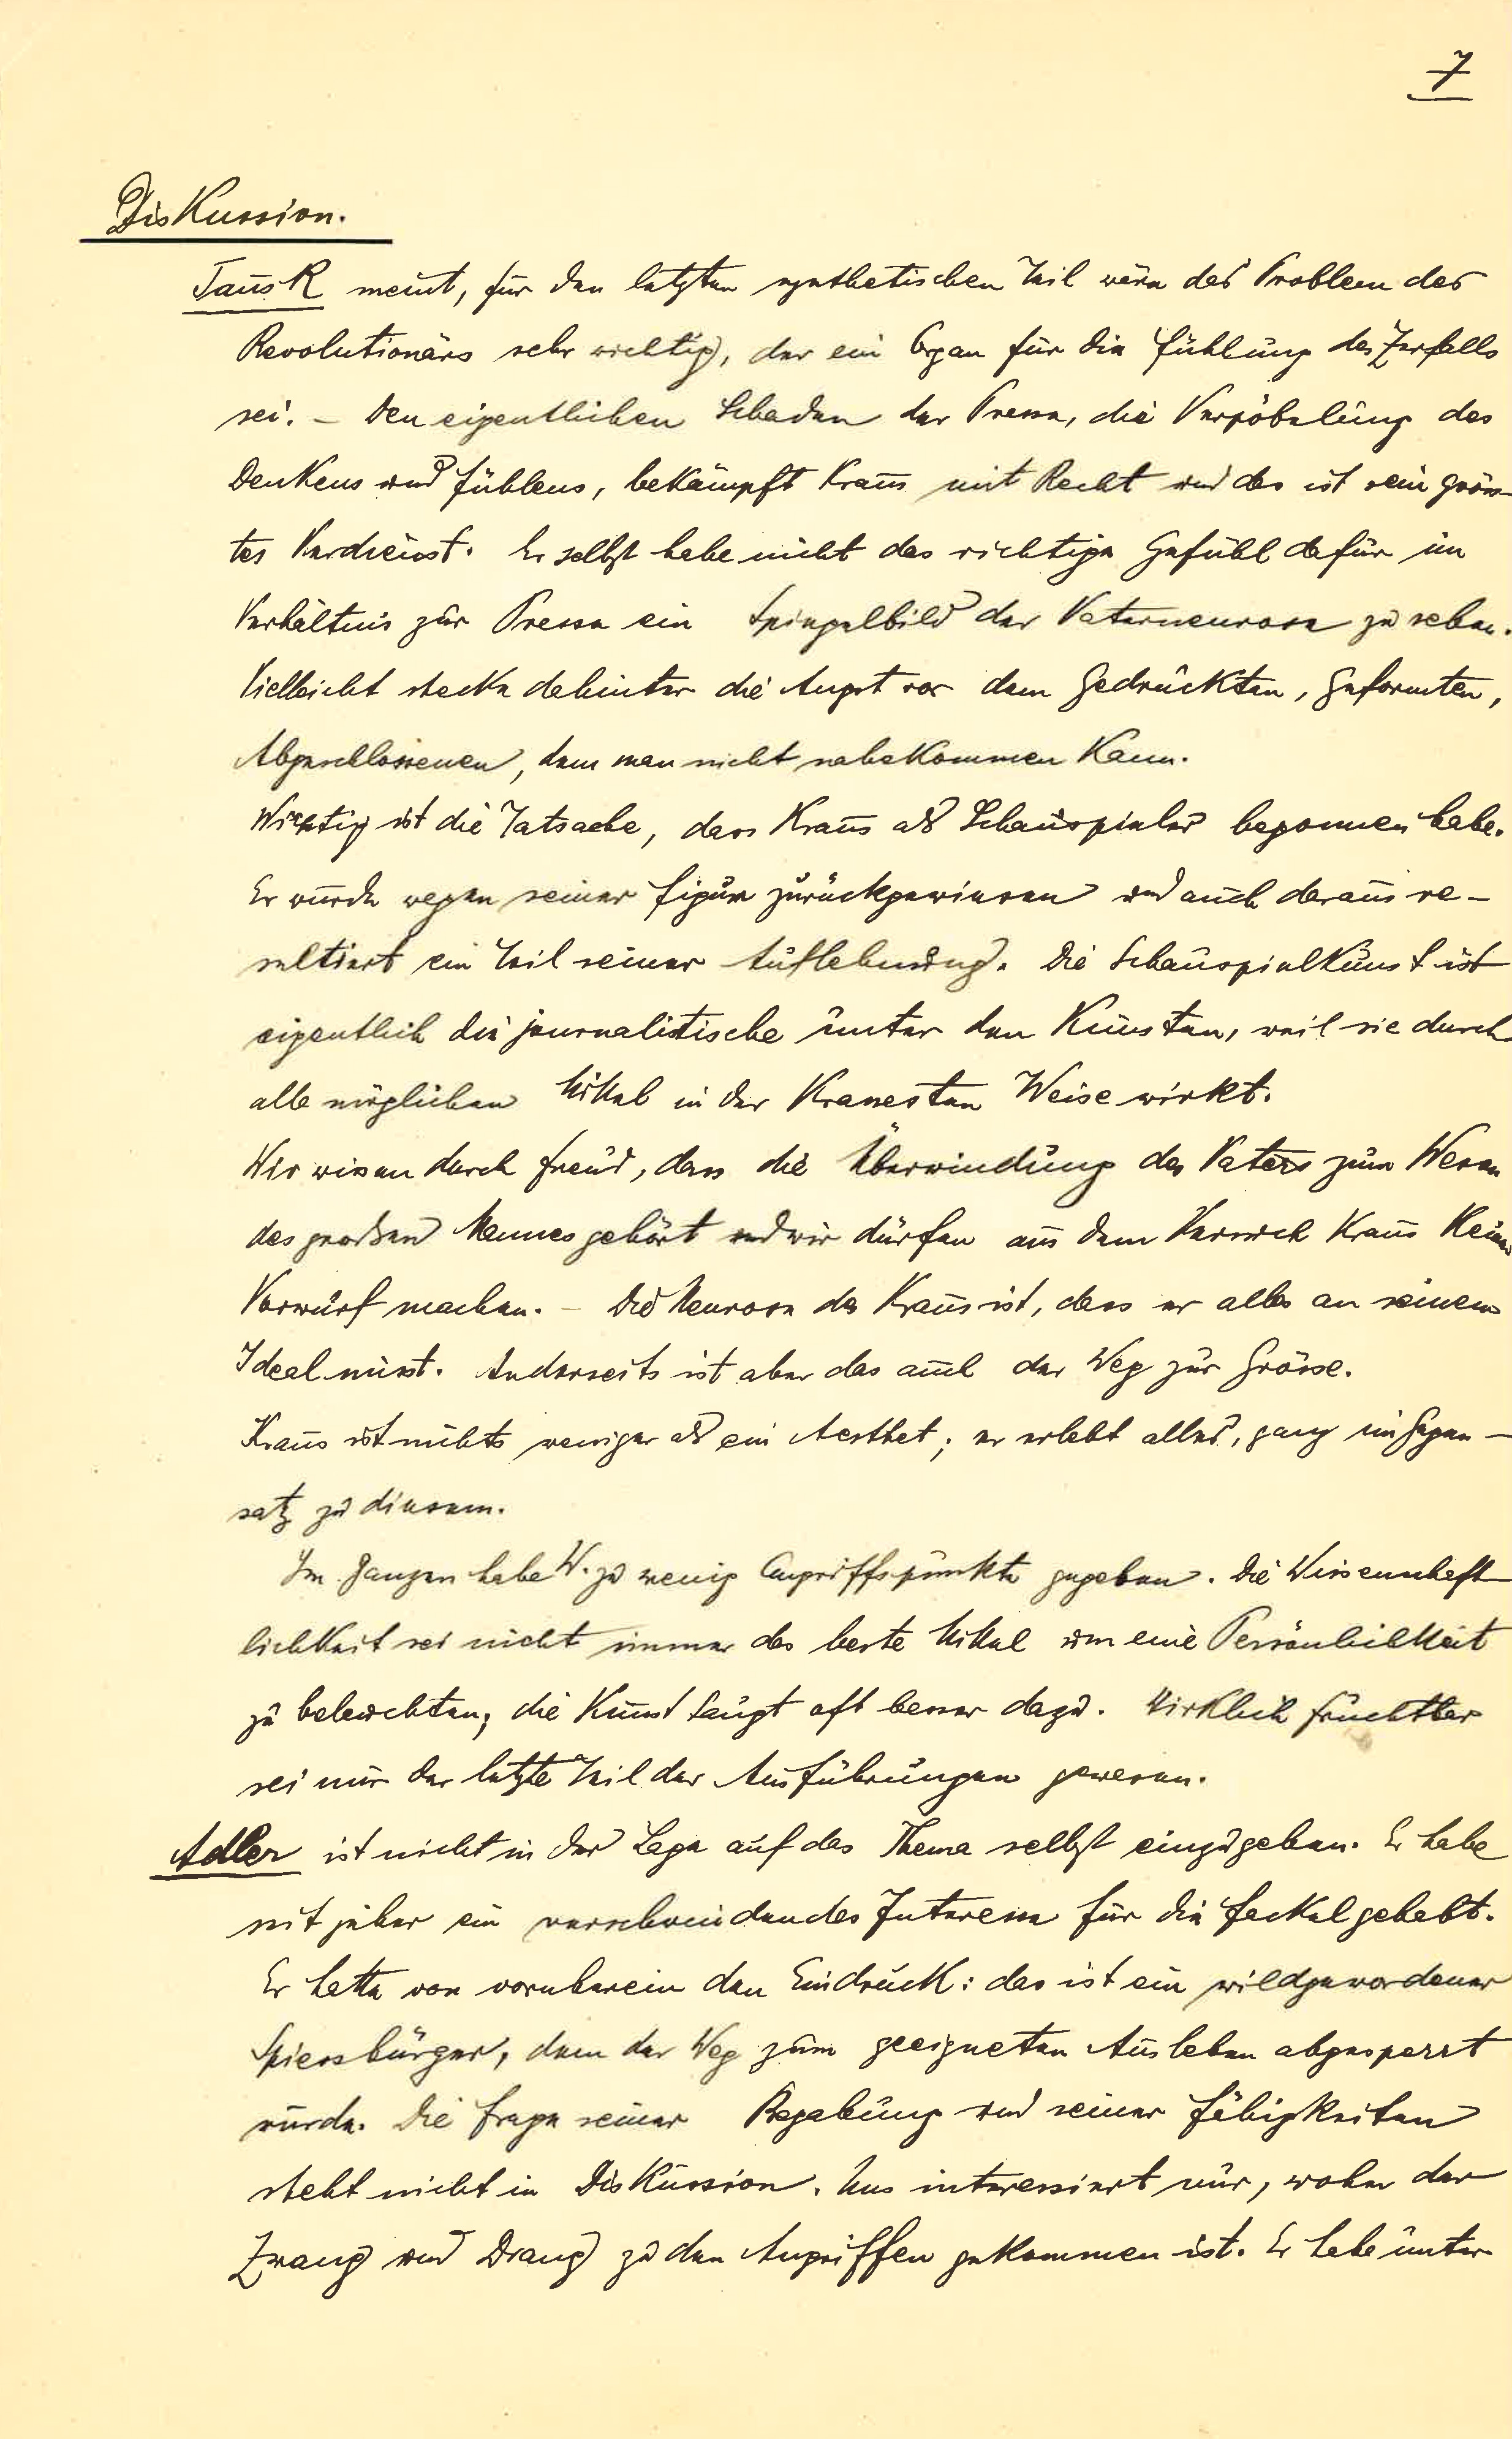 7
Diskussion.
Tausk meint, für den letzten synthetischen Teil wäre das Problem des
Revolutionärs sehr wichtig, der ein Organ für die Fühlung des Zerfalls
sei. – Den eigentlichen Schaden der Presse, die Verpöbelung des
Denkens und Fühlens, bekämpft Kraus mit Recht und das ist sein gröss-
tes Verdienst. Er selbst habe nicht das richtige Gefühl dafür im
Verhältnis zur Presse ein Spiegelbild der Vaterneurose zu sehen.
Vielleicht stecke dahinter die Angst vor dem Gedrückten, Geformten,
Abgeschlossenen, dem man nicht nahekommen kann.
Wichtig ist die Tatsache, dass Kraus als Schauspieler begonnen habe.
Er wurde wegen seiner Figur zurückgewiesen und auch daraus re-
sultiert ein Teil seiner Auflehnung. Die Schauspielkunst ist
eigentlich die journalistische unter den Künsten, weil sie durch
alle möglichen Mittel in der krassesten Weise wirkt.
Wir wissen durch Freud, dass die Überwindung des Vaters zum Wesen
des großen Mannes gehört und wir dürfen aus dem Versuch Kraus keinen
Vorwurf machen. – Die Neurose des Kraus ist, dass er alles an seinem
Ideal misst. Anderseits ist aber das auch der Weg zur Grösse.
Kraus ist nichts weniger als ein Aesthet; er erlebt alles, ganz im Gegen-
satz zu diesem.
Im Ganzen habe W. zu wenig Angriffspunkte gegeben. Die Wissenschaft-
lichkeit sei nicht immer das beste Mittel um eine Persönlichkeit
zu beleuchten; die Kunst taugt oft besser dazu. Wirklich fruchtbar
sei nur der letzte Teil der Ausführungen gewesen.
Adler ist nicht in der Lage auf das Thema selbst einzugehen. Er habe
seit jeher ein verschwindendes Interesse für die Fackel gehabt.
Er hatte von vornherein den Eindruck: das ist ein wildgewordener
Spiessbürger, dem der Weg zum geeigneten Ausleben abgesperrt
wurde. Die Frage seiner Begabung und seiner Fähigkeiten
steht nicht in Diskussion. Uns interessiert nur, woher der
Zwang und Drang zu den Angriffen gekommen ist. Er habe unter